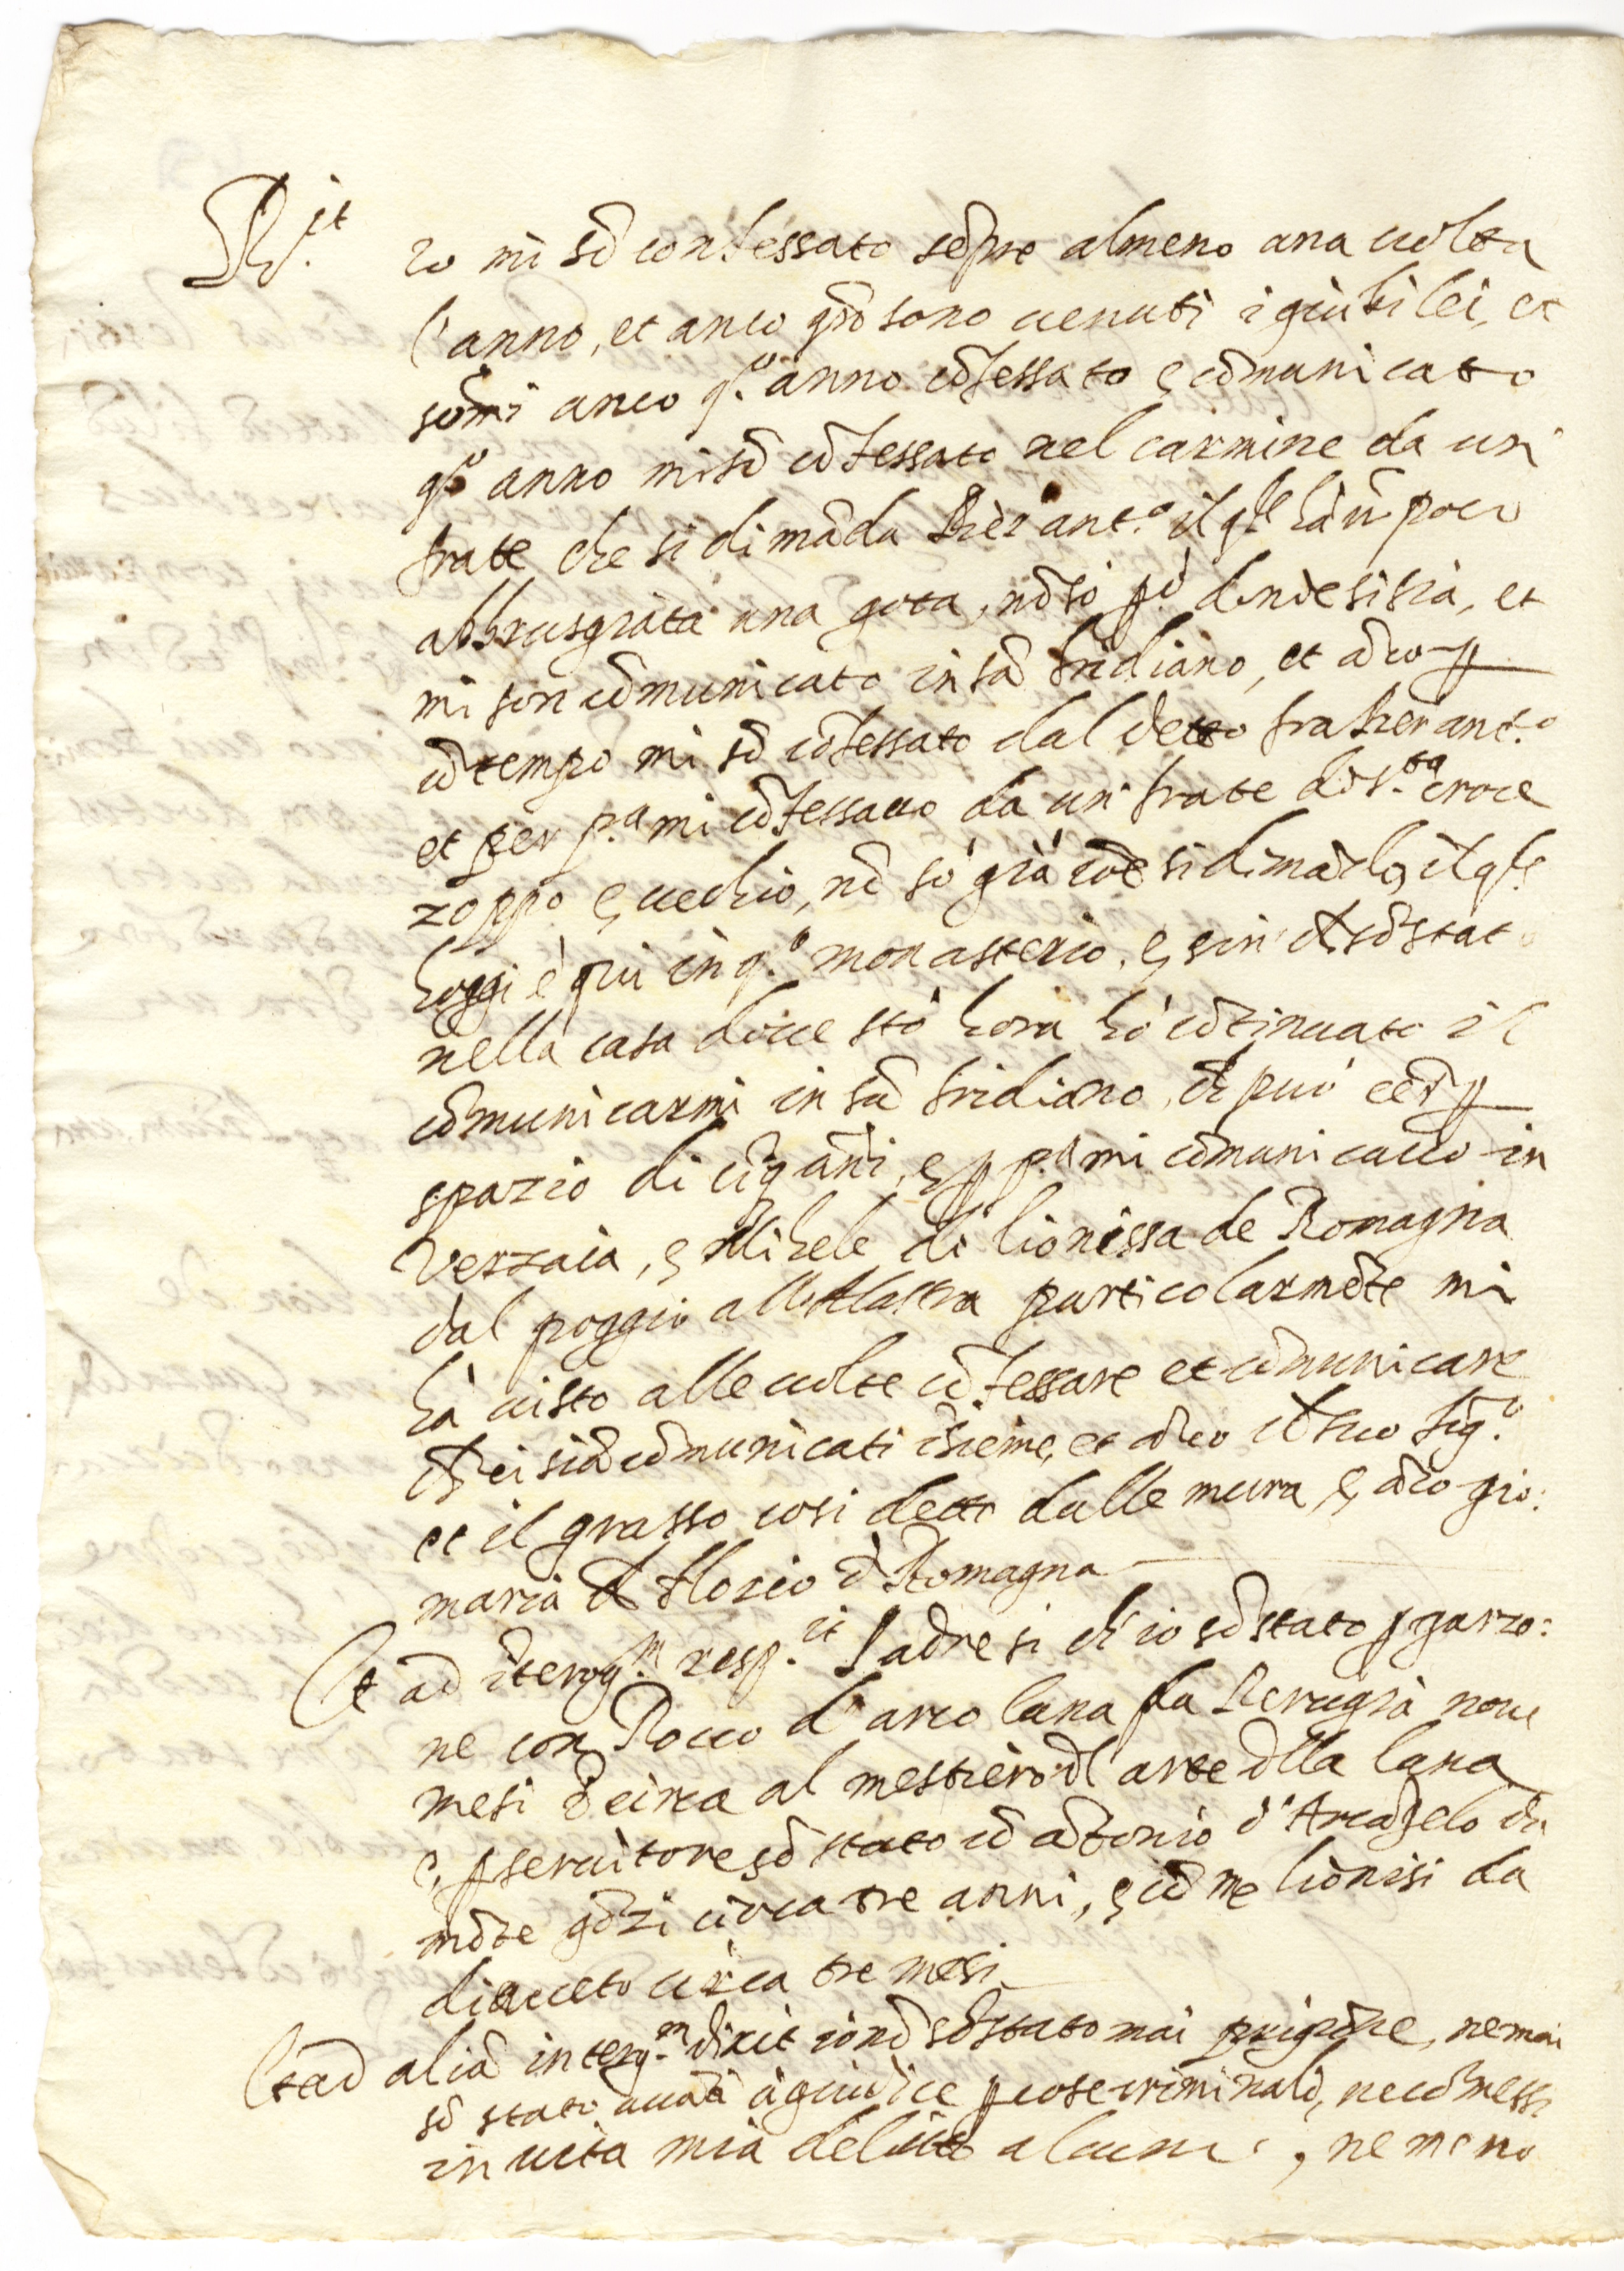 R.it Io mi sō confessato sēpre almeno una uolta
l'anno, et anco qñ sono uenuti i giubilei, et
sōmi anco q.o anno cōfessato e cōmunicato
q.o anno mi sō cōfessato nel carmine da un
frate che si dimāda Pier ant.o il q.le hà ū poco
abbrusgiata una gota, nō sò p.ò donde si sia, et
mi son cōmunicato in sā fridiano, et āco p
cō tempo mi sō cōfessato dal detto fra Pier ant.o
et per p.a mi cōfessauo da un frate di s.ta croce
zoppo e uechio, nō sò già cōe si dimādi, il q.le
hoggi è qui in q.o monasterio, e sin ch sō stato
nella casa doue stò hora hò cōtinuato il
cōmunicarmi in sā fridiano, ch può eēr p
spazio di cīq āni, e p p.a mi cōmunicauo in
Verzaia, e Michele di lionessa de Romagna
dal poggio alla particolarmēte mi
hà uisto alle uolte cōfessare et cōmunicare
ch ci siā cōmunicati īsieme, et āco il suo fig.o
et il grasso cosi detto dalle mura, e āco gio:
maria d Romagna
Et ad īterog.m resp.it Padre si ch'io sō stato p garzo:
ne con Rocco d'arco lana da Perugia noue
mesi ī circa al mestiero dl arte dlla lana
e p seruitore sō stato cō ātonio d'Arcāgelo da
mōte gōzi circa tre anni, e cō lionisi da
diacceto circa tre mesi
Et ad aliā interog.m dixit io nō sō stato mai prigione, ne mai
sō stato auāti à giudice p cose criminali, ne cōmessi
in uita mia delitto alcuno, ne meno